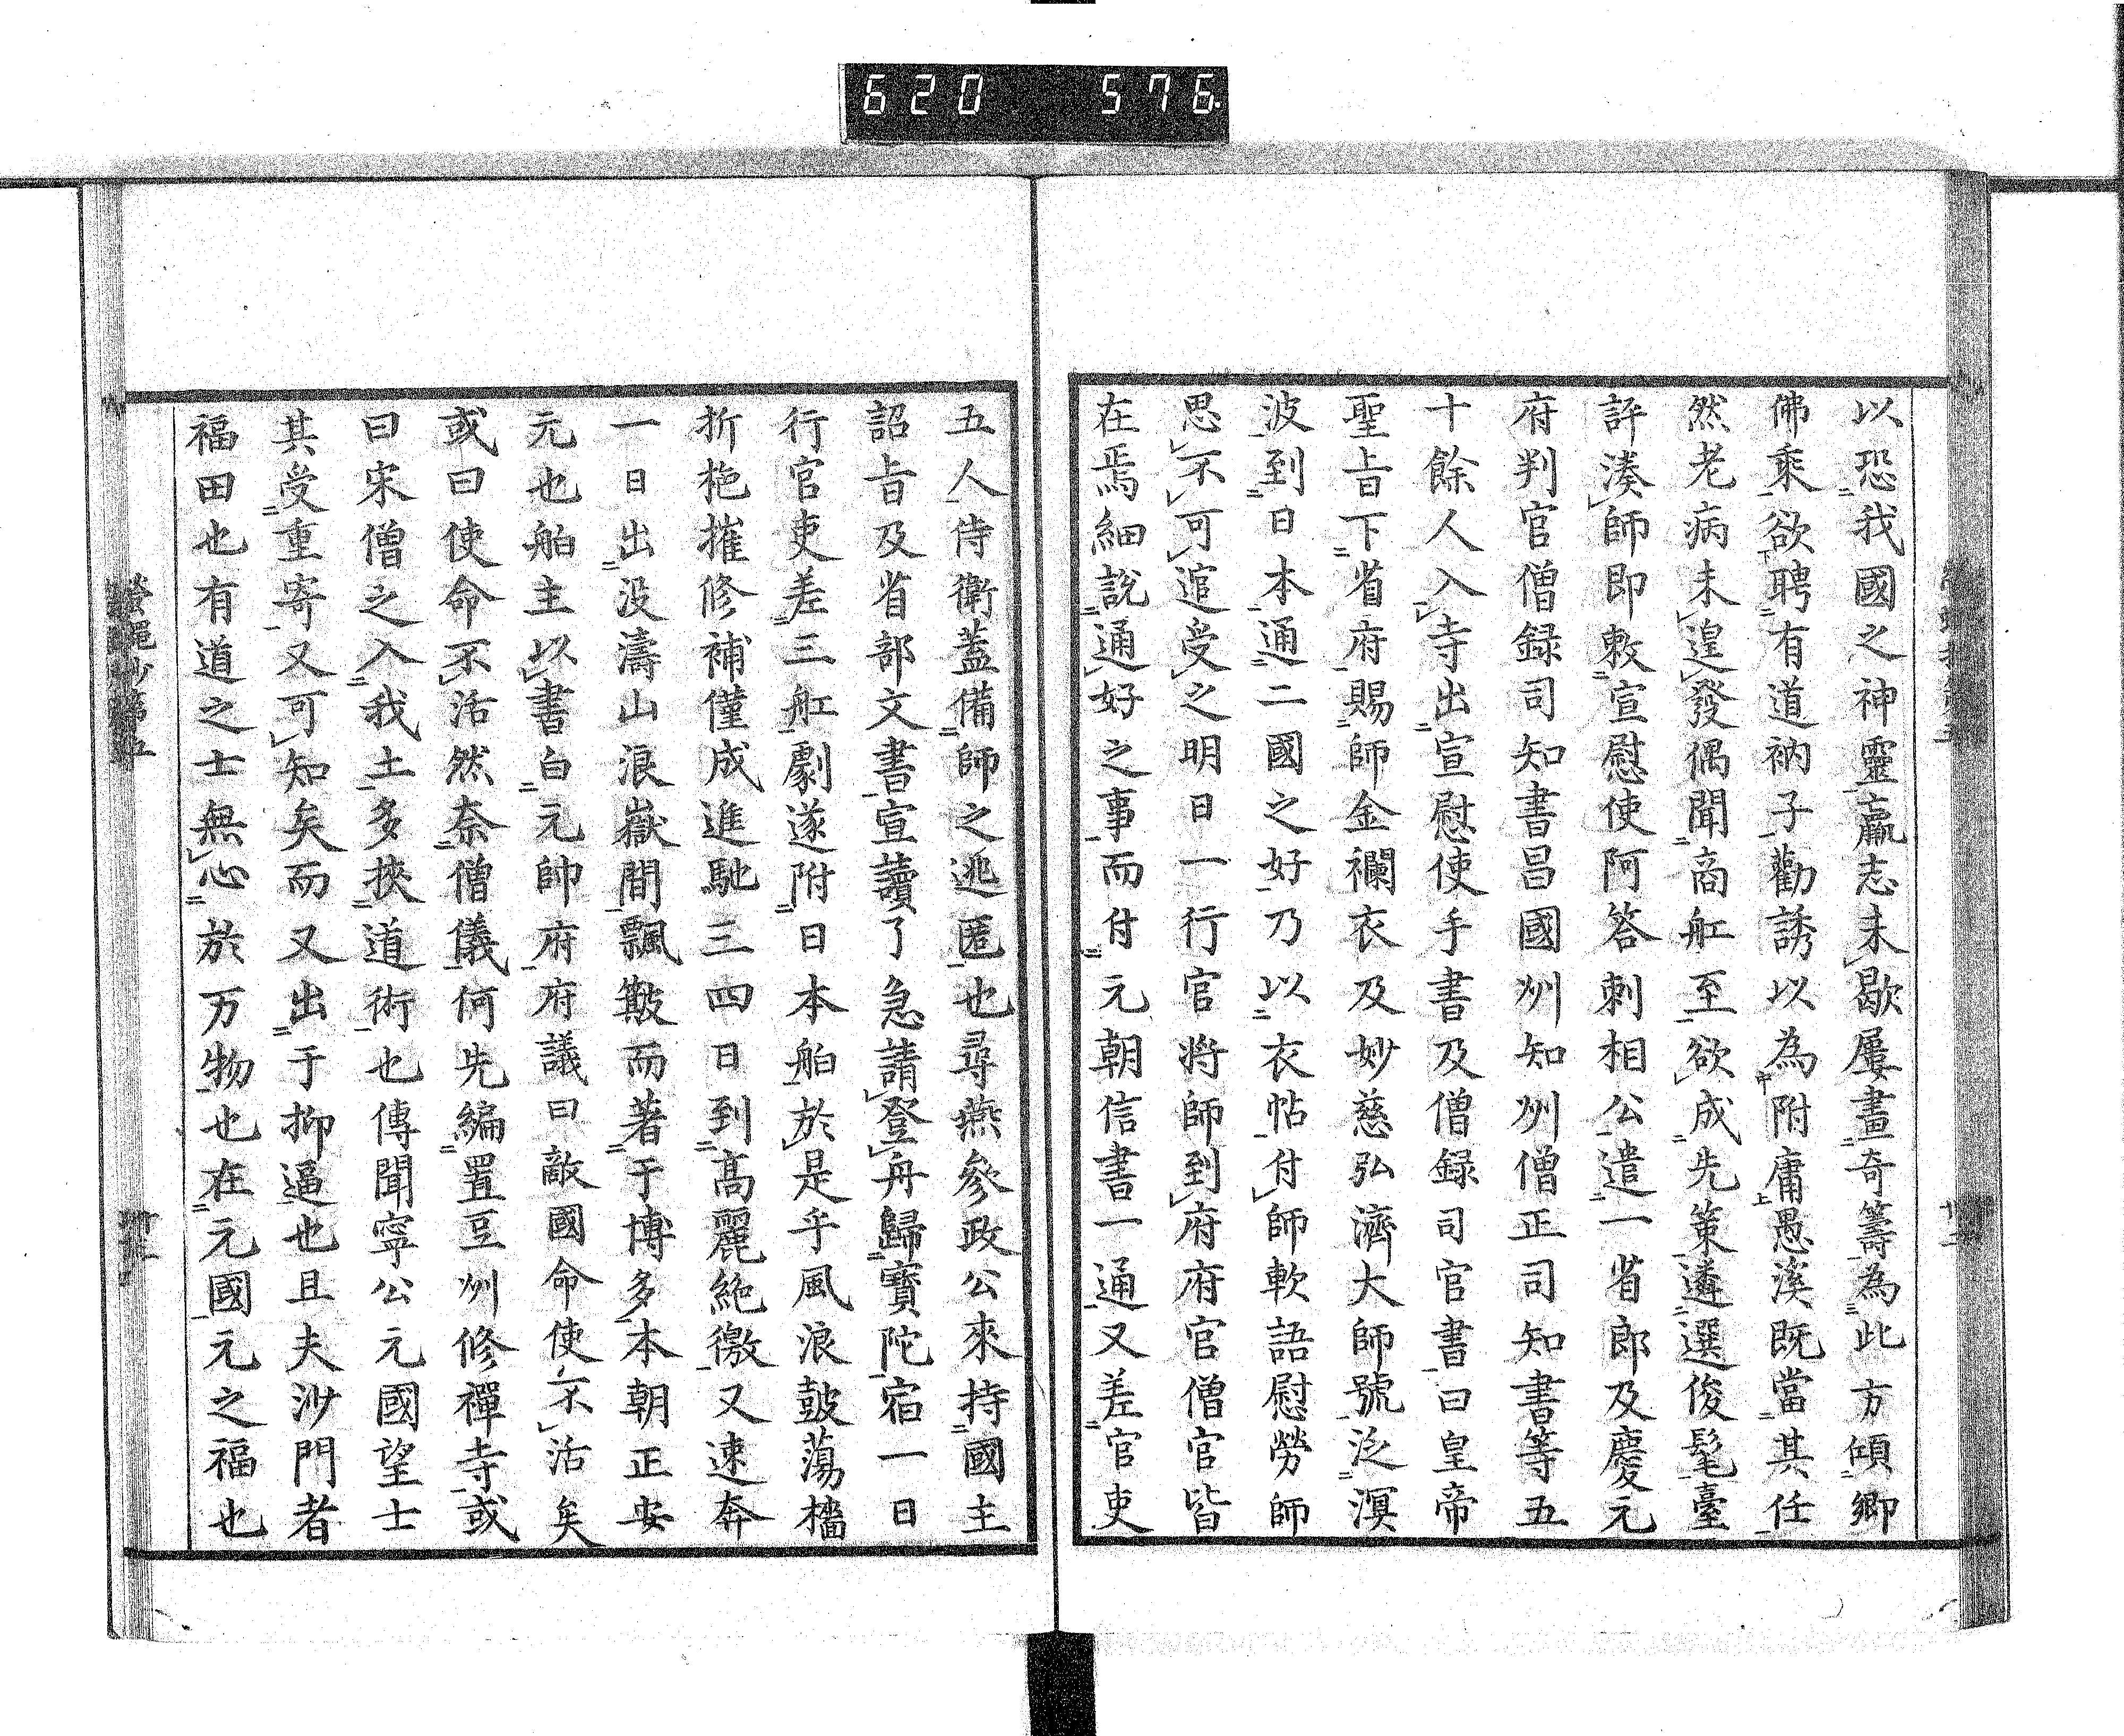 620 576.
以恐我國之神靈贏志未歇屢畫奇籌為此方傾卿
佛乘欲聘有道衲子勸誘以為附庸愚溪既當其任
然老病未遑發偶聞商舡至欲成先策遴選俊髦臺
許湊師即敕宣慰使阿答刺相公遣一省郎及慶元
府判官僧録司知書昌國州知州僧正司知書等五
十餘人入寺出宣慰使手書及僧録司官書曰皇帝
聖旨下省府賜師金襴衣及妙慈弘濟大師號泛溟
波到日本通二國之好乃以衣帖付師軟語慰勞師
思不可逭受之明日一行官将師到府府官僧官皆
在焉細說通好之事而付元朝信書一通又差官吏
五人侍衛蓋備師之逃匿也尋燕參政公來持國主
詔旨及省部文書宣讀了急請登舟歸寳陀宿一日
行官吏差三舡劇遂附日本舶於是乎風浪皷蕩檣
折柂摧修補僅成進馳三四日到高麗絶徼又速奔
一日出没濤山浪嶽間飄皾而著于博多本朝正安
元也舶主以書白元帥府府議曰敵國命使不活矣
或曰使命不活然奈僧儀何先編置豆州修禪寺或
曰宋僧之入我土多挾道術也傳聞寧公元國望士
其受重寄又可知矣而又出于抑逼也且夫沙門者
福田也有道之士無心於万物也在元國元之福也
螢蠅抄第五